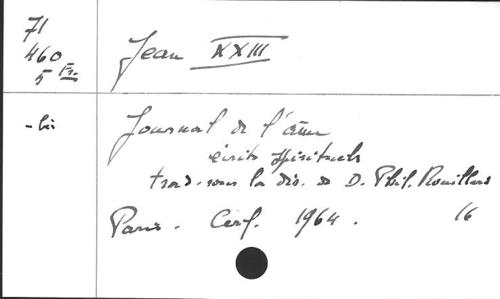 71
460
5 Fr.
Jean XXIII
- bis
Journal de l'âme
écrits spirituels
trad. sous la dir. de D. Phil. Rouillard
Paris. Cerf. 1964. 16